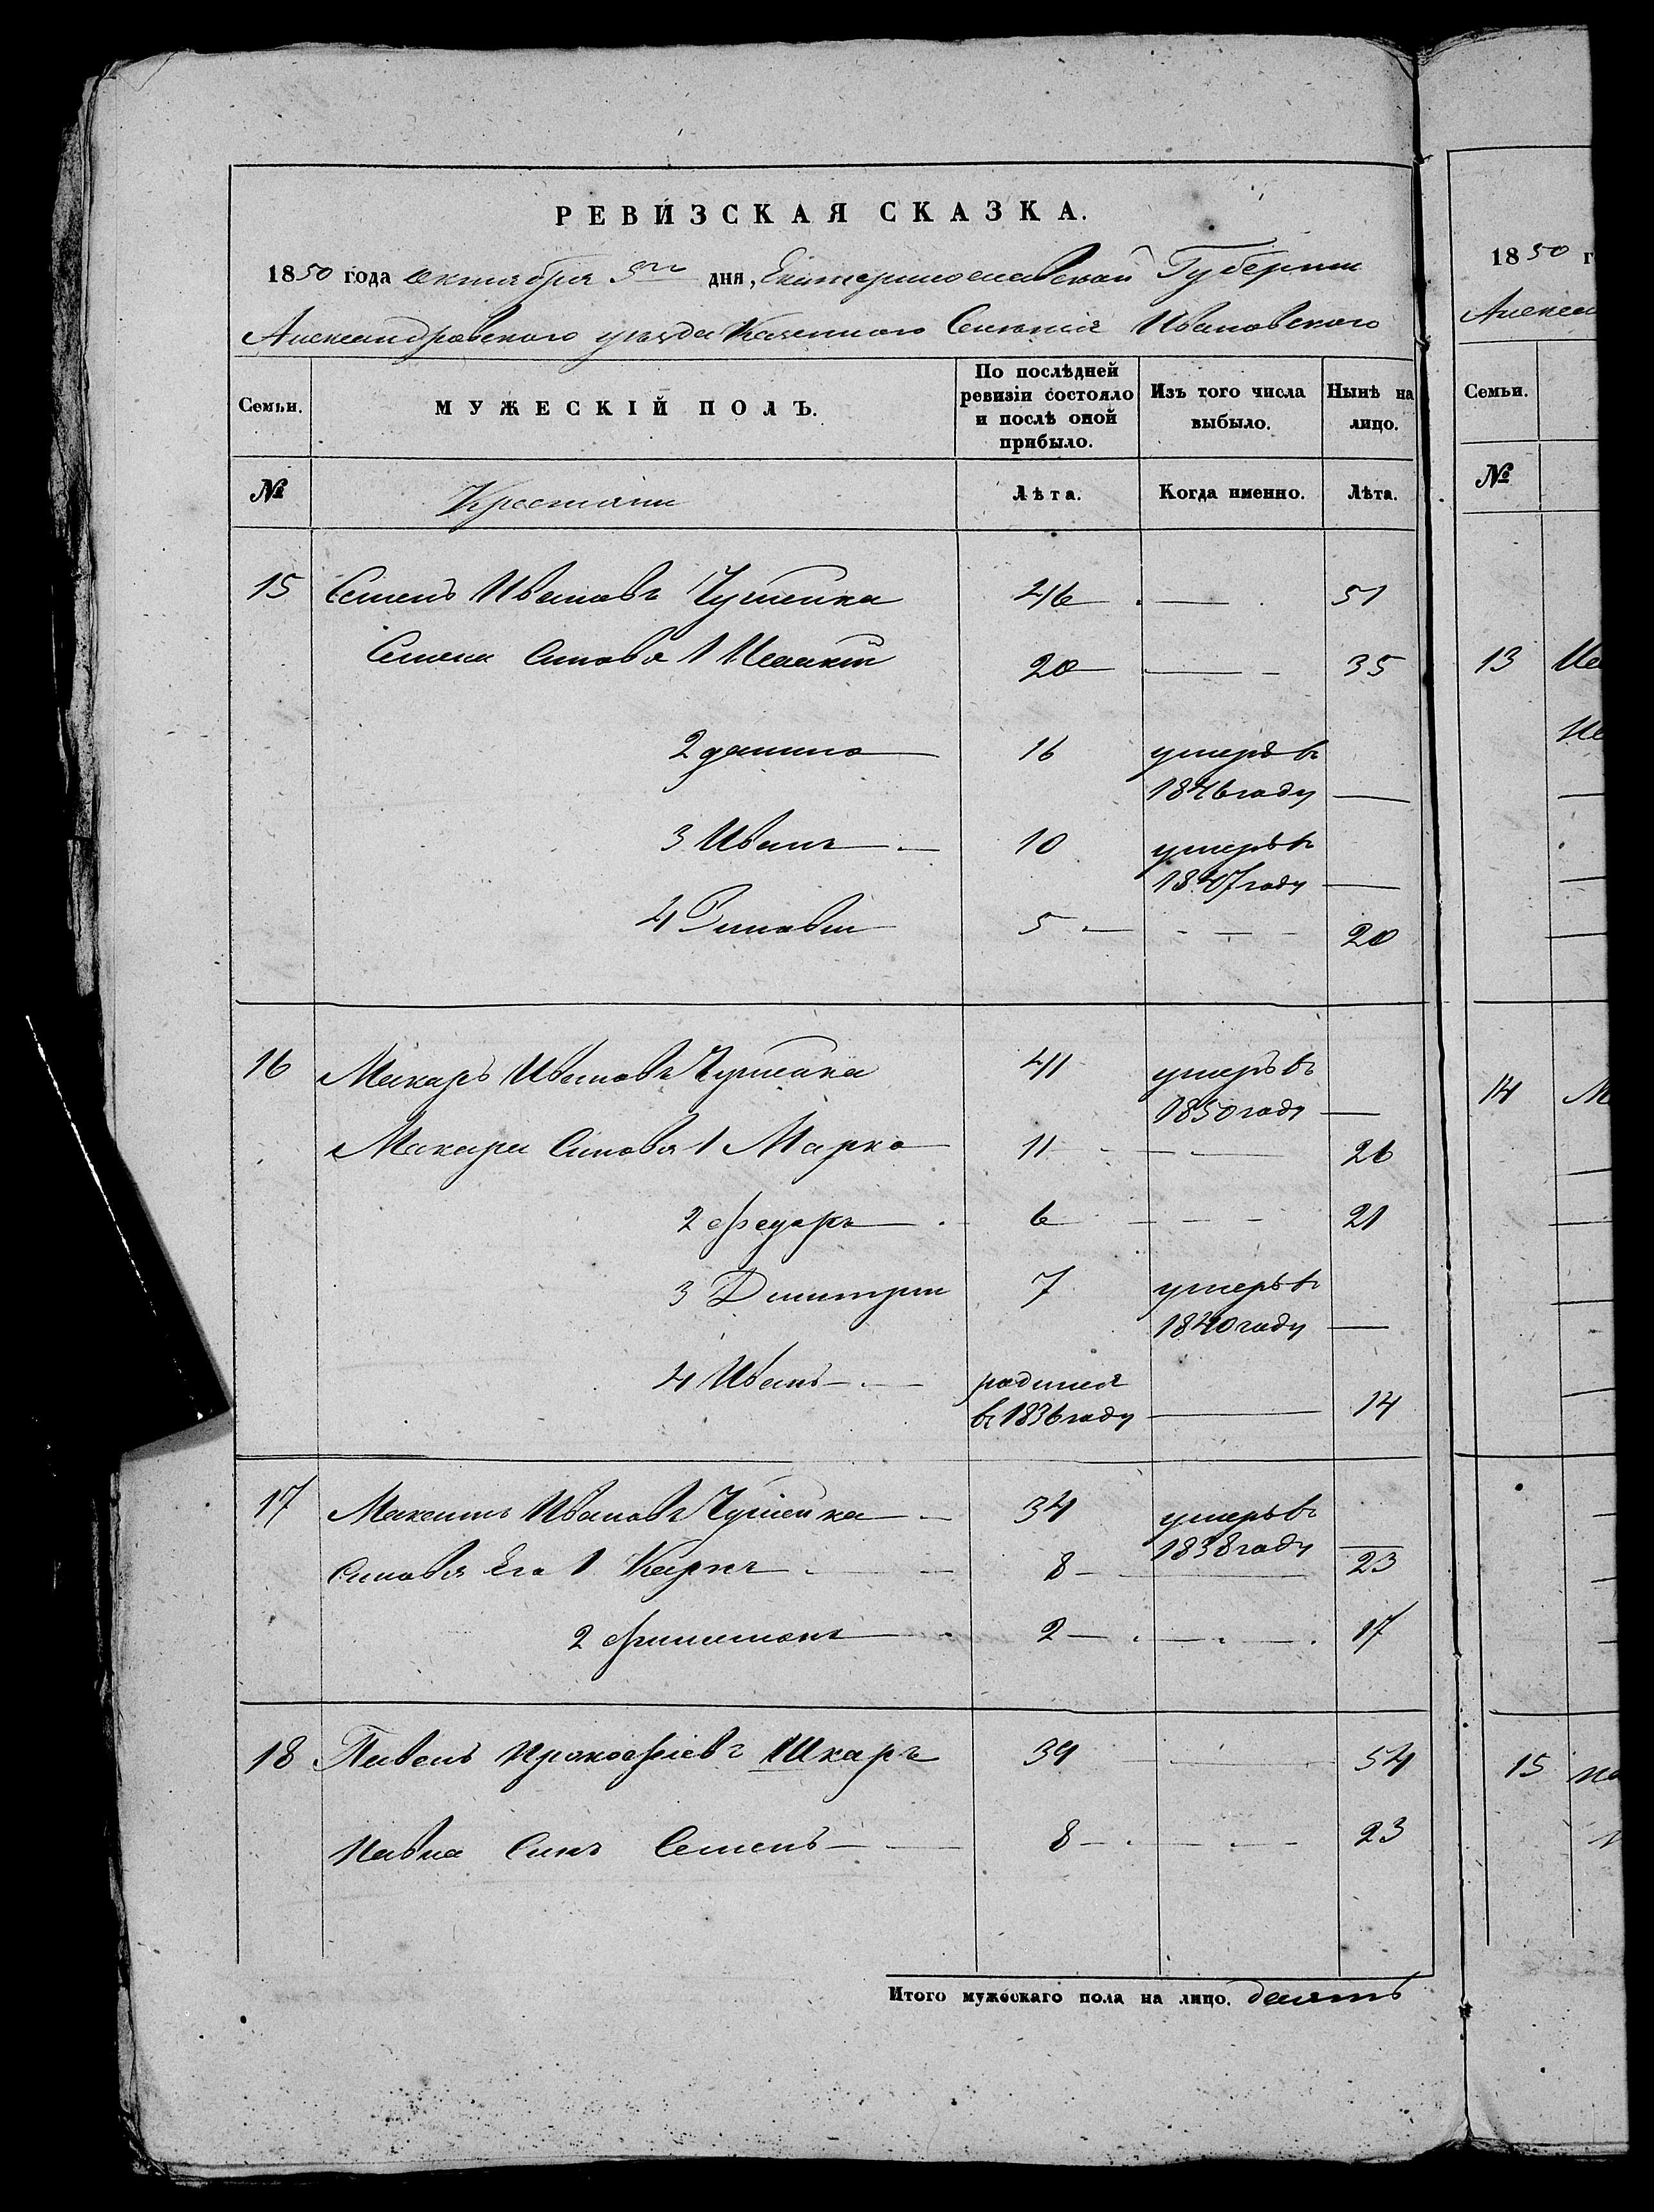 РЕВИЗСКАЯ СКАЗКА.
1850 года октября 5го дня, Екатеринославской Губернии
Александровского уезда Казенного Селения Ивановского
Семьи.
МУЖЕСКІЙ ПОЛЪ.
По послѣдней ревизіи состояло и послѣ оной прибыло.
Изъ того числа выбыло.
Нынѣ на лицо.
№ Крестьяни Лѣта. Когда именно. Лѣта.
15 Семенъ Ивановъ 46 — 51
Семена Синовя 1 Исаакій 20 — 35
2 данило 16 умеръ въ
1846 году —
3 Иванъ — 10 умеръ въ
1847 году —
4 Зиновій 5 — 20
16 Макаръ Ивановъ 41 умеръ въ
1850 году —
Макара Синовя 1 Марко 11 — 26
2 Федоръ 6 — 21
3 Дмитрій 7 умеръ въ
1840 году —
4 Иванъ — родился
въ 1836 году — 14
17 Максимъ Ивановъ 34 умеръ въ
1838 году —
Синовя Его 1 Карпъ 8 — 23
2 Филимонъ 2 — 17
18 Павелъ Прокофіевъ Шкаръ 39 — 54
Павла Синъ Семенъ 8 — 23
Итого мужескаго пола на лицо. десять
1850 г
Алексан
Семьи.
№
13
14 М
15